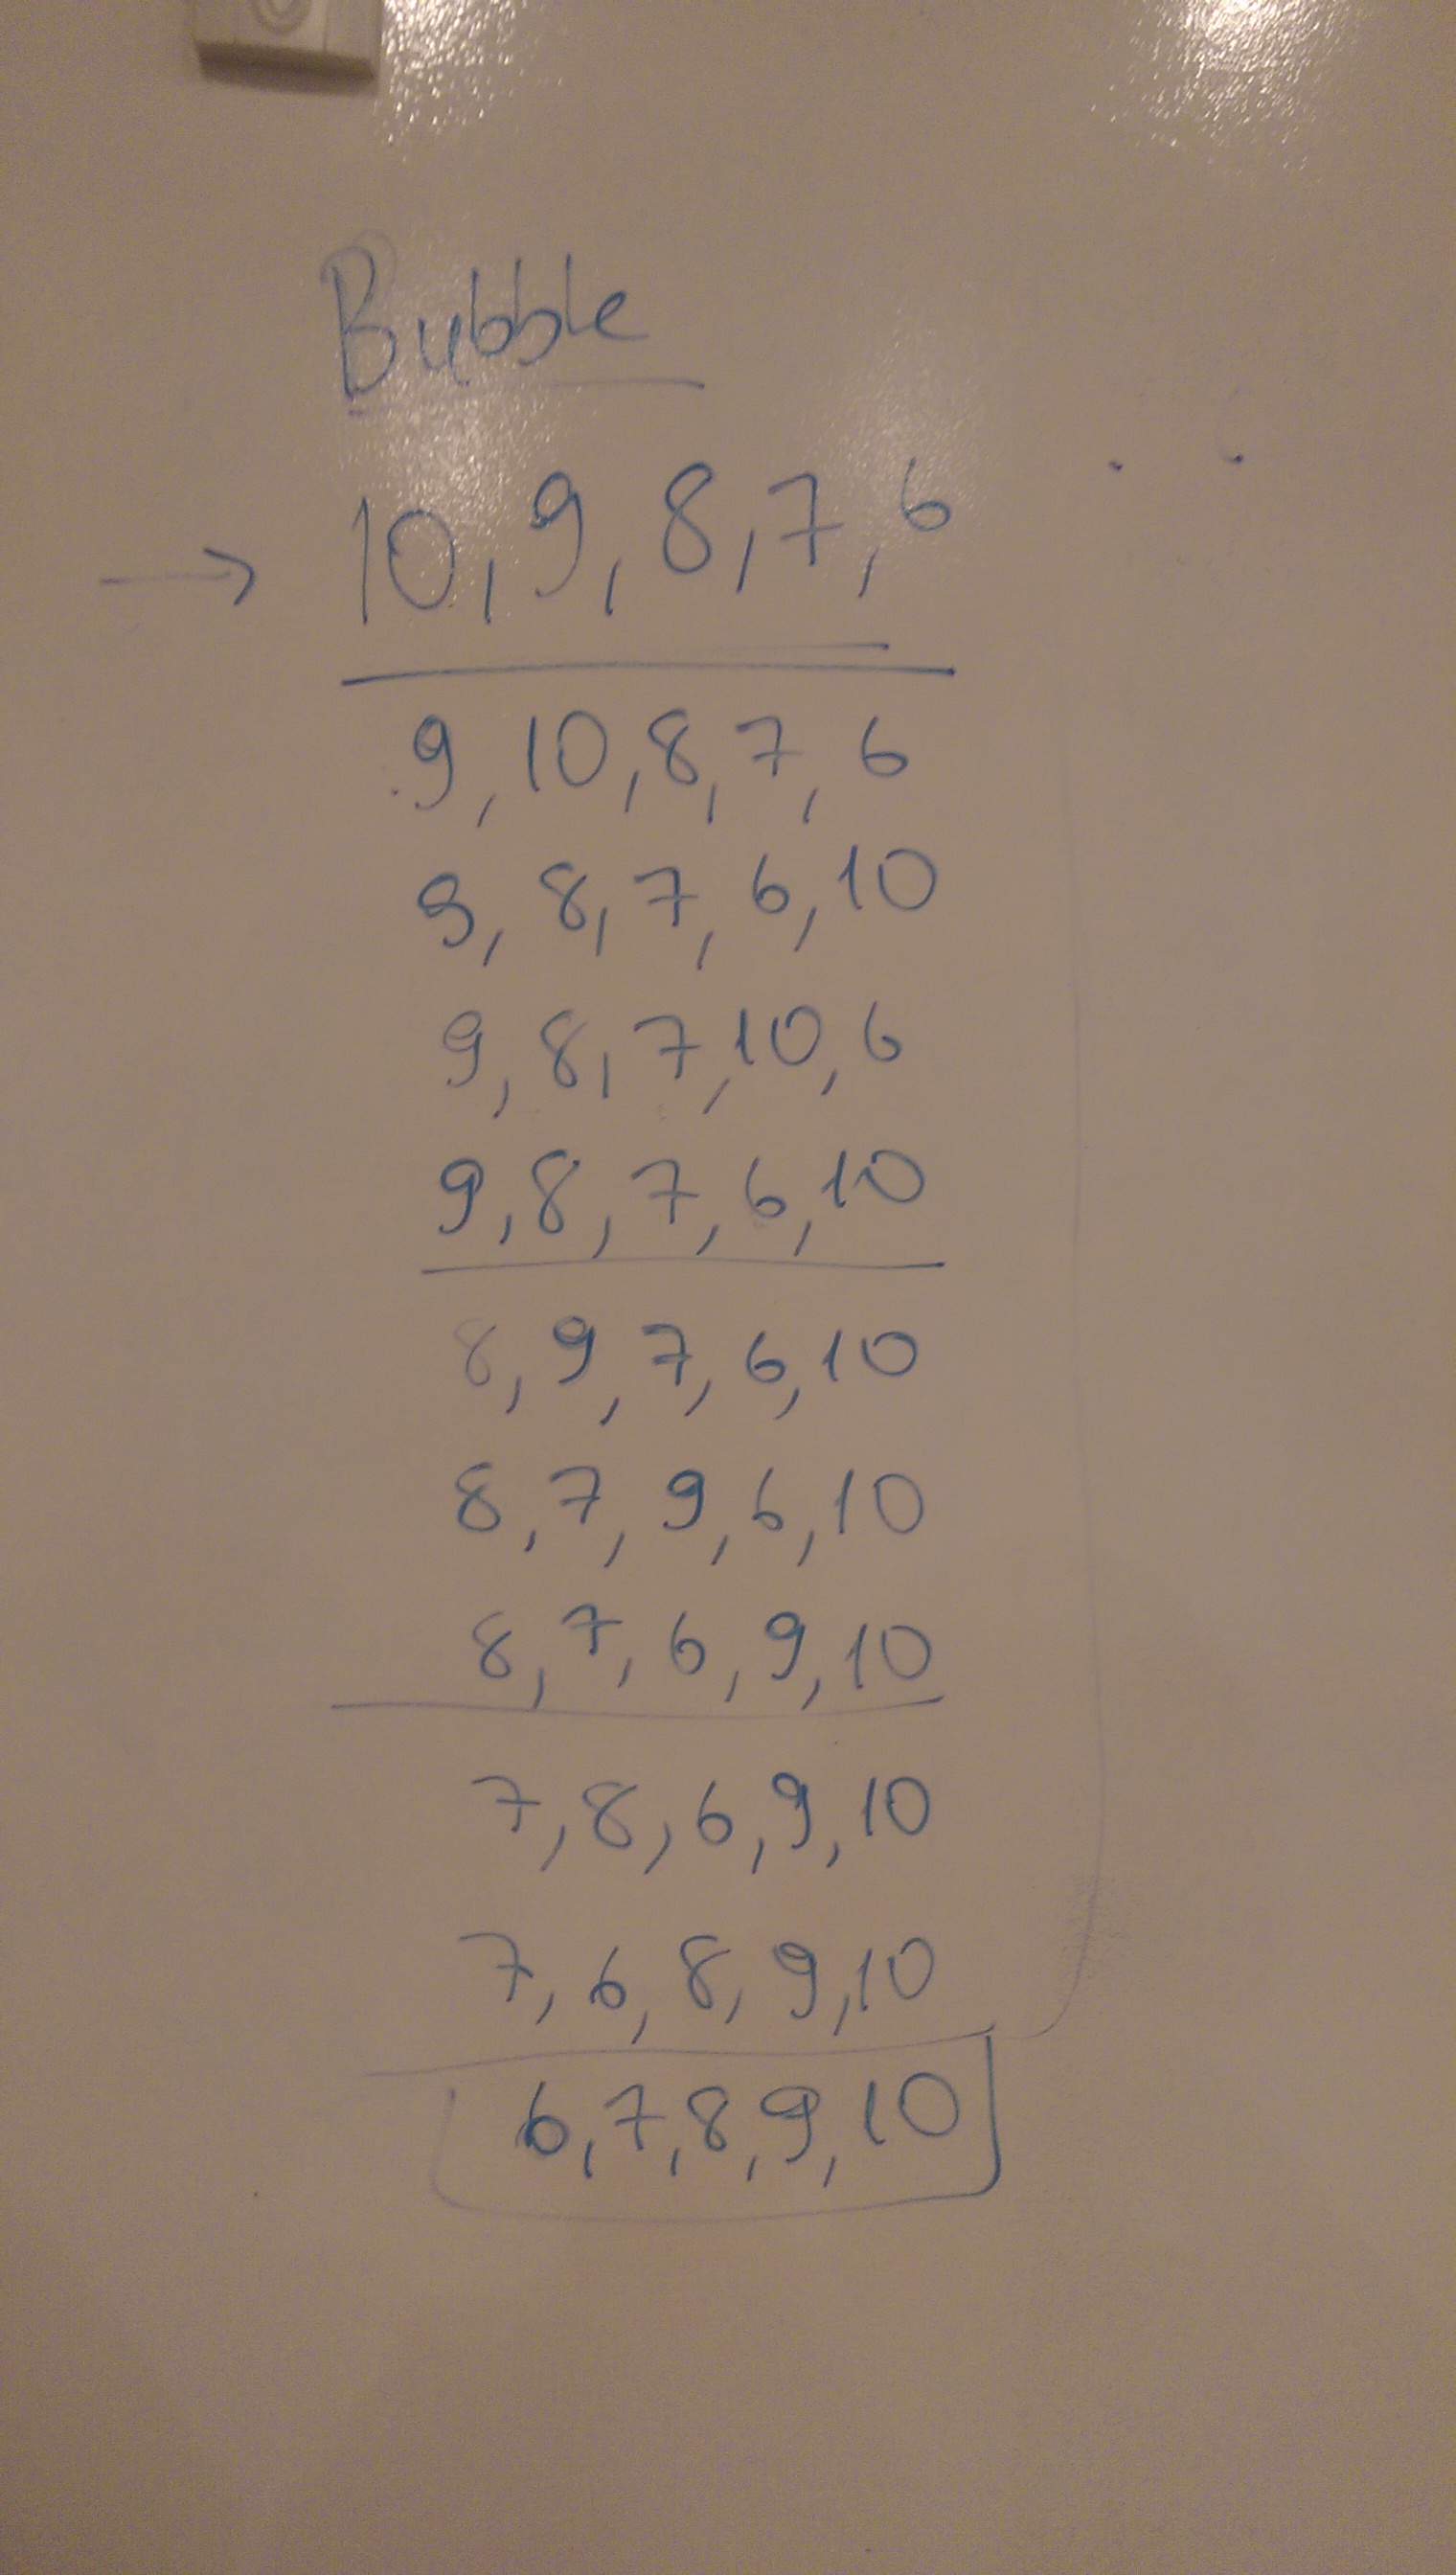 Bubble
→ 10, 9, 8, 7, 6
9, 10, 8, 7, 6
9, 8, 7, 6, 10
9, 8, 7, 10, 6
9, 8, 7, 6, 10
8, 9, 7, 6, 10
8, 7, 9, 6, 10
8, 7, 6, 9, 10
7, 8, 6, 9, 10
7, 6, 8, 9, 10
6, 7, 8, 9, 10